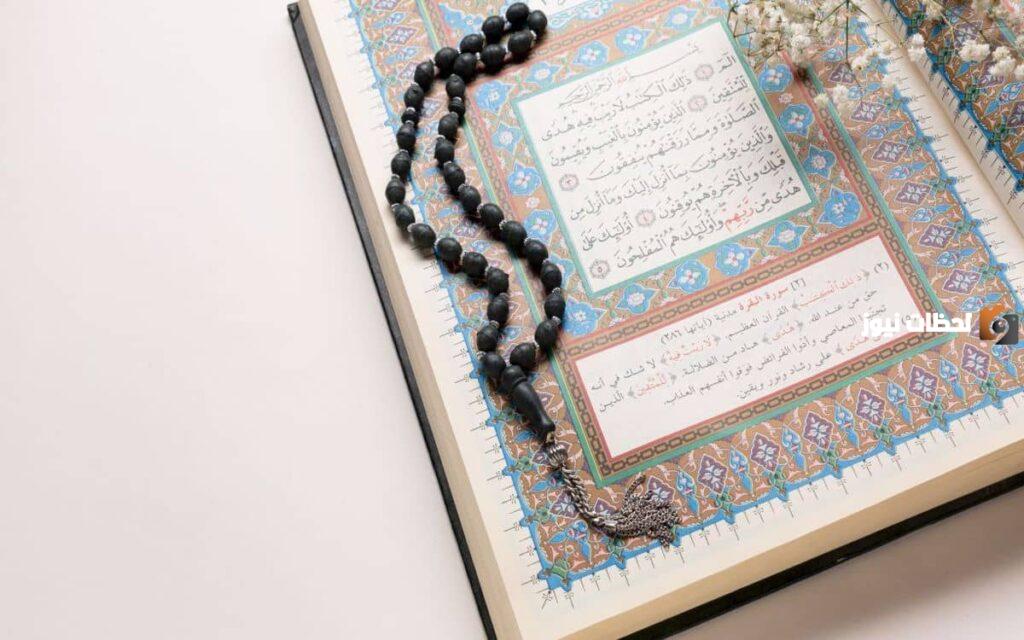 بسم الله الرحمن الرحيم
الٓمٓ ۝١ ذَٰلِكَ الْكِتَٰبُ لَا رَيْبَ فِيهِ هُدًى
لِلْمُتَّقِينَ ۝٢ الَّذِينَ يُؤْمِنُونَ بِالْغَيْبِ وَيُقِيمُونَ
الصَّلَوٰةَ وَمِمَّا رَزَقْنَٰهُمْ يُنْفِقُونَ ۝٣
وَالَّذِينَ يُؤْمِنُونَ بِمَا أُنْزِلَ إِلَيْكَ وَمَا أُنْزِلَ مِنْ
قَبْلِكَ وَبِالْآخِرَةِ هُمْ يُوقِنُونَ ۝٤ أُولَٰئِكَ عَلَىٰ
هُدًى مِنْ رَبِّهِمْ وَأُولَٰئِكَ هُمُ الْمُفْلِحُونَ ۝٥
(٢) سورة البقرة مدنية (آياتها ٢٨٦)
(٢) ﴿ذلك الكتاب﴾ القرآن العظيم. ﴿لا ريب فيه﴾ لا شك في أنه
حق من عند الله. ﴿هدى﴾ هاد من الضلالة. ﴿للمتقين﴾ الذين
المعاصي وأدوا الفرائض فوقوا أنفسهم العذاب.
هدى﴾ على رشاد ونور ويقين.
لحظات نيوز